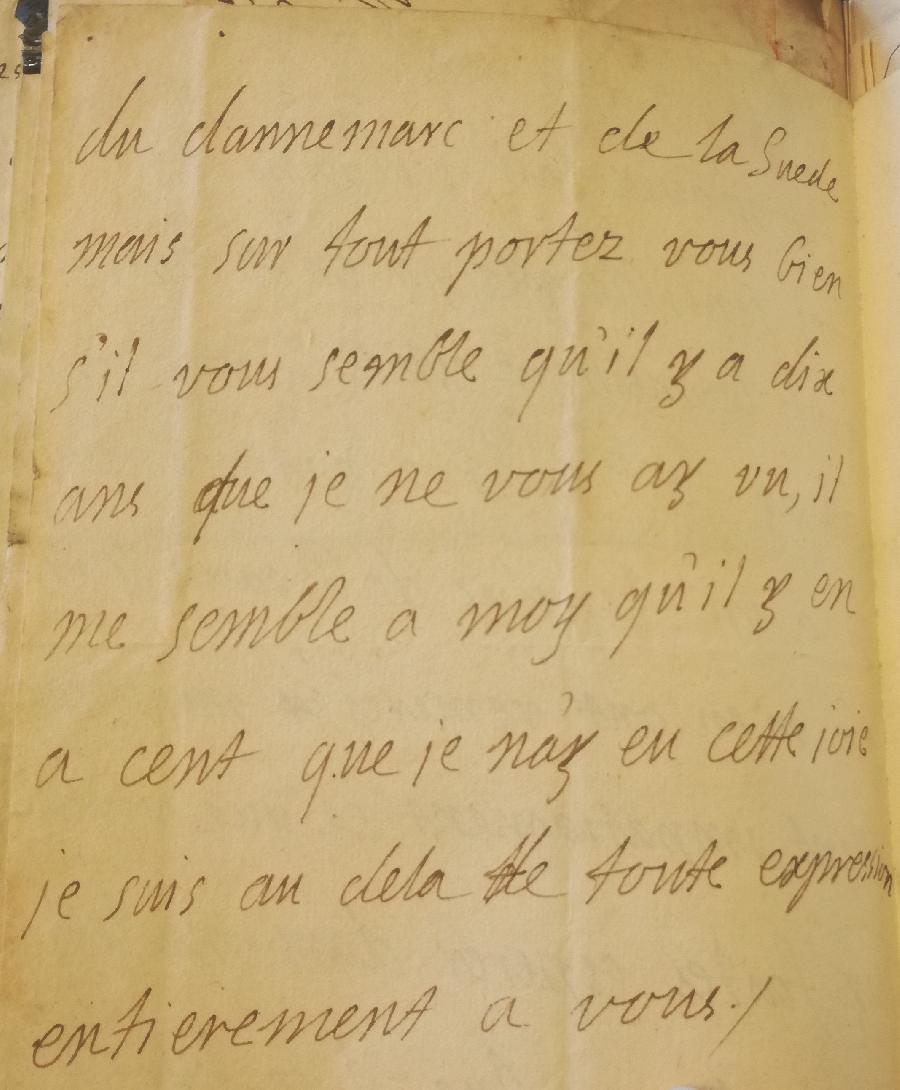 du dannemarc et de la Suede
mais sur tout portez vous bien
s'il vous semble qu'il y a dix
ans que je ne vous ay vu, il
me semble a moy qu'il y en
a cent que je n'ay eu cette joie
je suis au dela de toute expression
entierement a vous./